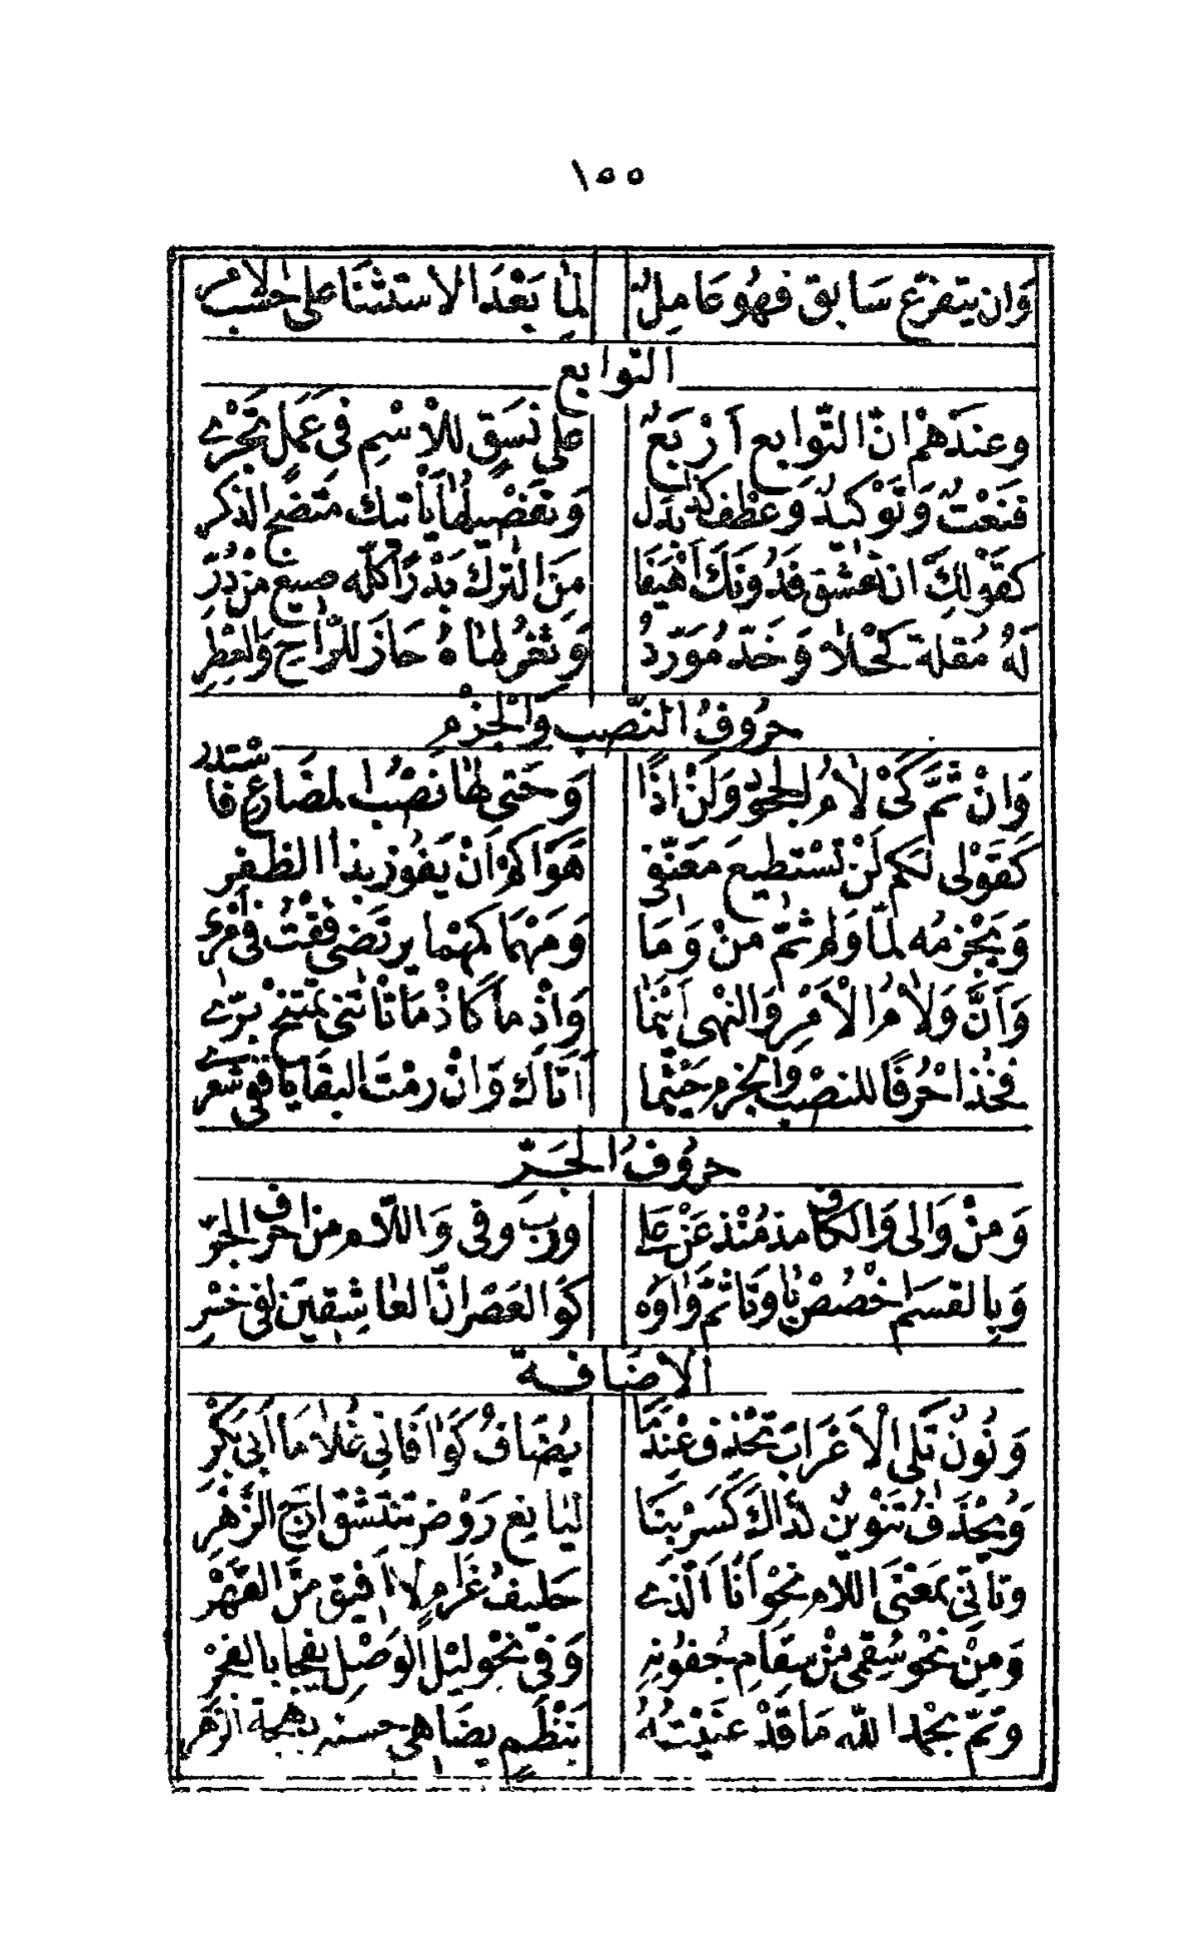 ١٥٥
وَان يتفرغ سَابق فهُو عَامِلٌ لِمَا بَعْدَ الاستثنَا على حسب الامر
التوابع
وعندَهمْ انّ التّوابع أرْبَعٌ على نسَقٍ للاسْمِ فى عَمَلٍ تجْرى
فنعْتٌ وَتَوْكيدٌ وَعطْف كذا بَدَل وَتفصْيلهَا يَأتيك متضح الذكر
كقَوْلكَ ان تعشق فدُونَكَ أهْيَفَا مِنَ الترْك بَدْرًا كلّه صيغ من دُرِّ
لَهُ مُقلة كَحْلا وَخدّ مُوَرّدٌ وَثغرُ لمَاهُ حَازَ للرّاح وَالعِطْرِ
حرُوفُ النَّصب وَالْجزْم
وَانْ ثمَّ كَىْ لامُ الجحود وَلَنْ اذًا وَحَتى لهَا نصْبُ المضَارع فاستدر
كقَوْلى لكم لَنْ تستطيعَ معَنّفى هَوَاكمْ أنْ يَفُوز بذا الظفر
وَيَجْزمُه لمّا وَلم ثمّ منْ وَمَا وَمَهْمَا كمهْما يرتَضى فقْتُ فى أمرى
وَأنَّ وَلامُ الْأمْرِ وَالنهى أيْنمَا وَاذ ما كاذْ مَا تأتنى تمتنح برّى
فخذا حْرُفًا للنصْب وَالجزم حَيْثما أتَاكَ وَانْ رمْتَ البقَايَا ففى شعرى
حرُوفُ الجَرّ
وَمنْ وَالى وَالكاف مذ مُنْذ عَنْ عَلى وربّ وفى وَاللام من احرُف الجرّ
وَبِالقسَم اخْصُصْ بَا وَتَا ثمَّ وَاوَه كوَالعَصْر انّ العَاشِقينَ لفى خسْرِ
الاضَافة
وَنُونٌ تَلى الاعْرَابَ تحْذف عنْدمَا يُضَافُ كَوَافَانى غُلامَا أبى بكْرِ
وَيُحْذَفُ تنْوينٌ لذَاكَ كَسَرْبنَا ليَانِع رَوْض تنتشق ارَج الزّهْرِ
وتأتى بمَعْنَى اللام نحْو أنَا الّذى حَليفُ غَرَامٍ لا أفيق مَنَ القهْرِ
وَمِنْ نَحْو سُقمى منْ سِقَامِ جُفونِهِ وَفى نحْو ليْل الوَصْل يفجا بالفجْر
وَتمّ بحْمد اللّه مَا قدْ عنيْتُهُ بنَظْمٍ يضَاهى حسنه بهجة الزهر